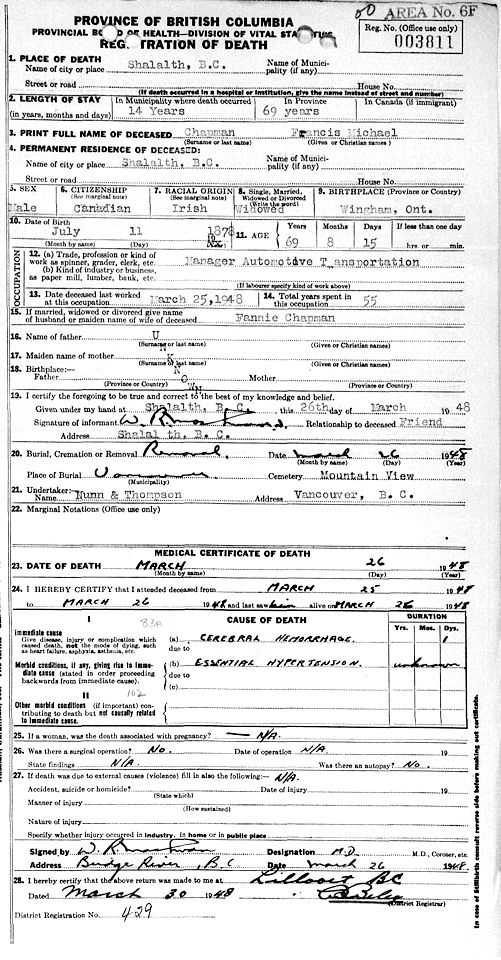 AREA No. 6F
PROVINCE OF BRITISH COLUMBIA
PROVINCIAL BOARD OF HEALTH—DIVISION OF VITAL STATISTICS
REGISTRATION OF DEATH
Reg. No. (Office use only)
003811
1. PLACE OF DEATH Shalalth, B.C. Name of Munici-
Name of city or place pality (if any)
Street or road House No.
(If death occurred in a hospital or institution, give the name instead of street and number)
2. LENGTH OF STAY In Municipality where death occurred In Province In Canada (if immigrant)
(in years, months and days) 14 Years 69 years
3. PRINT FULL NAME OF DECEASED Chapman Francis Michael
(Surname or last name) (Given or Christian names)
4. PERMANENT RESIDENCE OF DECEASED: Name of Munici-
Name of city or place Shalalth, B.C. pality (if any)
Street or road House No.
5. SEX 6. CITIZENSHIP 7. RACIAL ORIGIN 8. Single, Married, Widowed or Divorced 9. BIRTHPLACE (Province or Country)
(See marginal note) (See marginal note) (Write the word)
Male Canadian Irish Widowed Wingham, Ont.
10. Date of Birth 11. AGE Years Months Days If less than one day
July 11 1878 69 8 15
(Month by name) (Day) hrs. or min.
OCCUPATION
12. (a) Trade, profession or kind of work as spinner, grader, clerk, etc.
(b) Kind of industry or business, as paper mill, lumber, bank, etc.
Manager Automotive Transportation
(If labourer specify kind of work above)
13. Date deceased last worked at this occupation March 25,1948 14. Total years spent in this occupation 55
15. If married, widowed or divorced give name
of husband or maiden name of wife of deceased Fannie Chapman
16. Name of father UNKNOWN
(Surname or last name) (Given or Christian names)
17. Maiden name of mother
(Surname or last name) (Given or Christian names)
18. Birthplace:—
Father Mother
(Province or Country) (Province or Country)
19. I certify the foregoing to be true and correct to the best of my knowledge and belief.
Given under my hand at Shalalth, B.C. this 26th day of March 1948
Signature of informant Relationship to deceased Friend
Address Shalalth, B. C.
20. Burial, Cremation or Removal Removal Date March 26 1948
(Month by name) (Day) (Year)
Place of Burial Vancouver Cemetery Mountain View
(Municipality)
21. Undertaker: Name Nunn & Thompson Address Vancouver, B. C.
22. Marginal Notations (Office use only)
MEDICAL CERTIFICATE OF DEATH
23. DATE OF DEATH MARCH 26 1948
(Month by name) (Day) (Year)
24. I HEREBY CERTIFY that I attended deceased from MARCH 25 1948
to MARCH 26 1948 and last saw him alive on MARCH 26 1948
I 83A CAUSE OF DEATH DURATION
Yrs. Mos. Dys.
Immediate cause
Give disease, injury or complication which caused death, not the mode of dying, such as heart failure, asphyxia, asthenia, etc.
(a) CEREBRAL HEMORRHAGE. 1
due to
Morbid conditions, if any, giving rise to immediate cause (stated in order proceeding backwards from immediate cause).
(b) ESSENTIAL HYPERTENSION. unknown
due to
(c)
II 102
Other morbid conditions (if important) contributing to death but not causally related to immediate cause.
25. If a woman, was the death associated with pregnancy? — N/A.
26. Was there a surgical operation? No. Date of operation N/A 19
State findings N/A. Was there an autopsy? No.
27. If death was due to external causes (violence) fill in also the following:— N/A.
Accident, suicide or homicide? Date of injury 19
(State which)
Manner of injury
(How sustained)
Nature of injury
Specify whether injury occurred in industry, in home or in public place
Signed by Designation M.D. M.D., Coroner, etc.
Address Bridge River, B.C Date March 26 1948.
28. I hereby certify that the above return was made to me at Lillooet BC
Dated March 30 1948
(District Registrar)
District Registration No. 429
In case of Stillbirth consult reverse side before making out certificate.